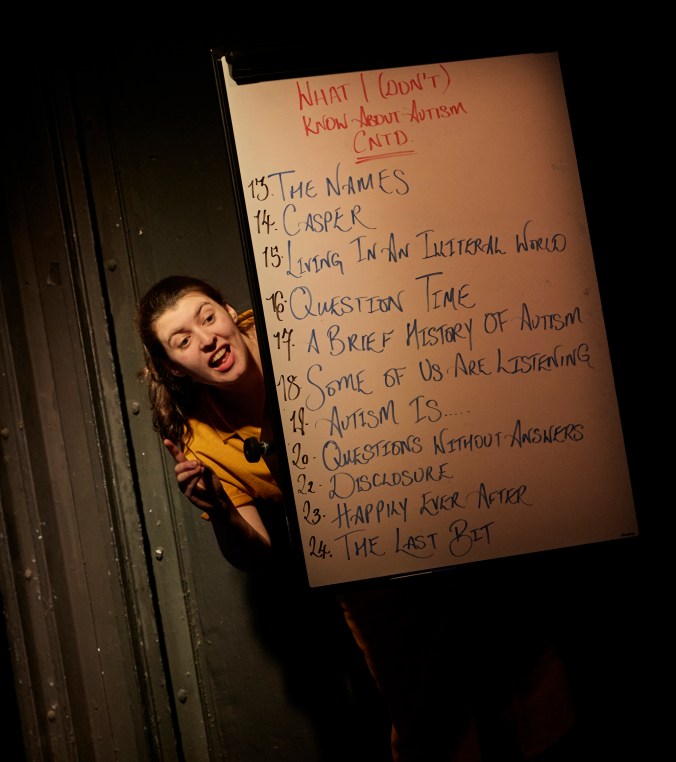 WHAT I (DON'T)
KNOW ABOUT AUTISM
CNTD.
13. THE NAMES
14. CASPER
15. LIVING IN AN ILLITERAL WORLD
16. QUESTION TIME
17. A BRIEF HISTORY OF AUTISM
18. SOME OF US ARE LISTENING
19. AUTISM IS.....
20. QUESTIONS WITHOUT ANSWERS
22. DISCLOSURE
23. HAPPILY EVER AFTER
24. THE LAST BIT